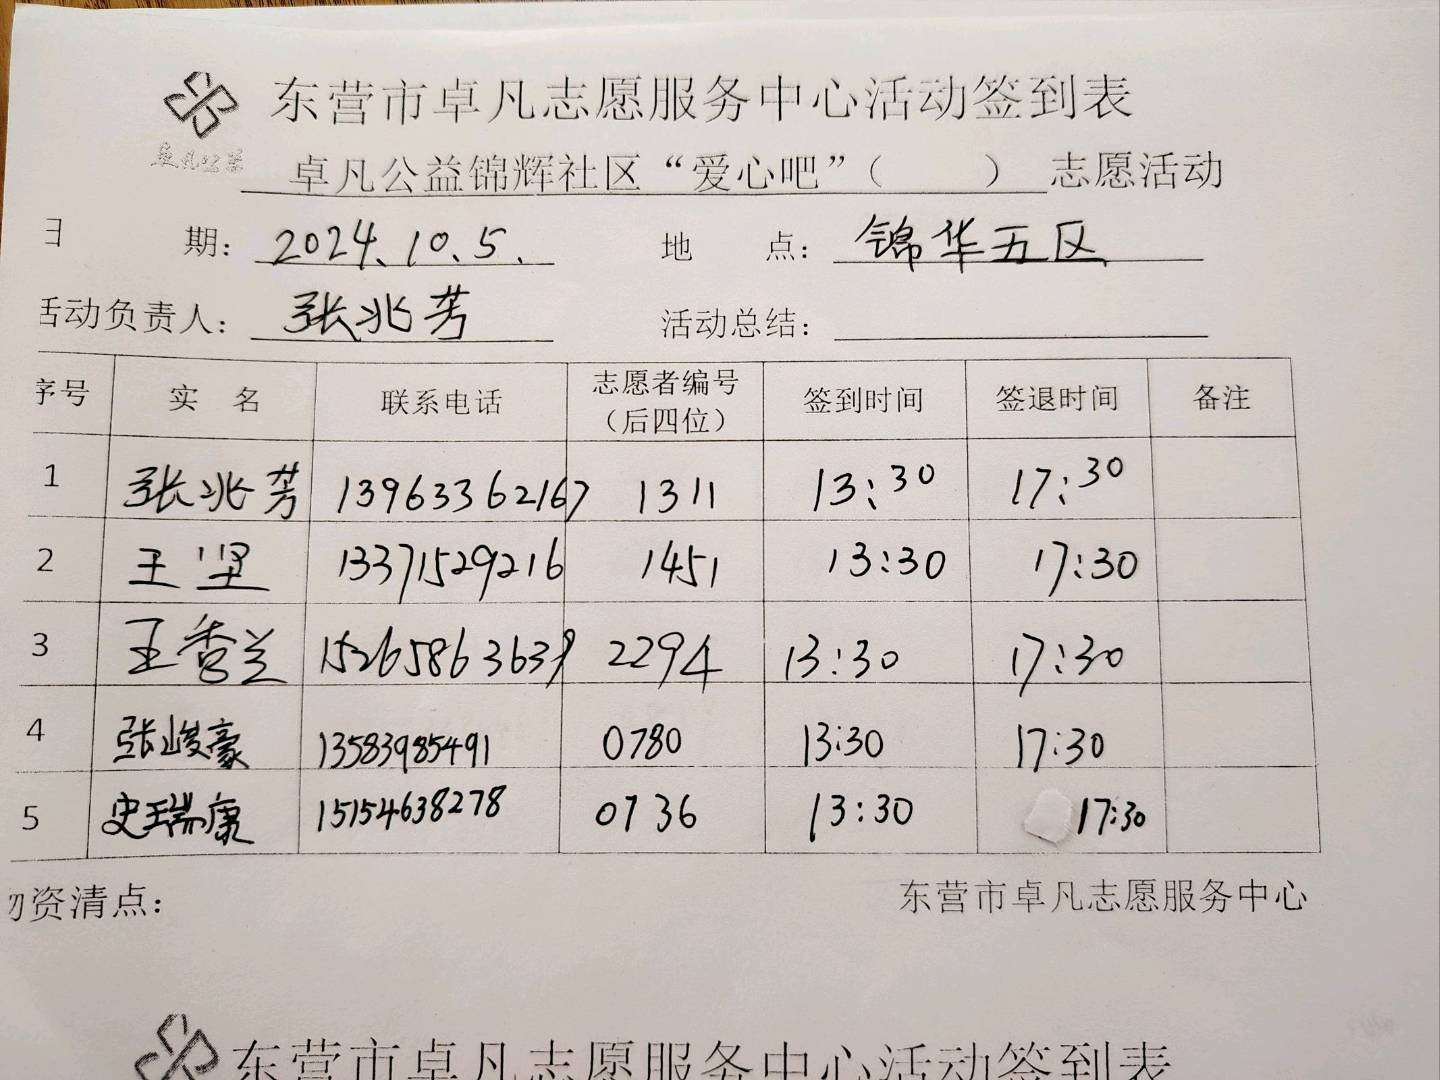 东营市卓凡志愿服务中心活动签到表
卓凡公益
卓凡公益锦辉社区“爱心吧”（ ） 志愿活动
日 期： 2024.10.5. 地 点： 锦华五区
活动负责人： 张兆芳 活动总结：
序号 实 名 联系电话 志愿者编号（后四位） 签到时间 签退时间 备注
1 张兆芳 13963362167 1311 13:30 17:30
2 王坚 13371529216 1451 13:30 17:30
3 王香兰 15265863639 2294 13:30 17:30
4 张峻豪 13583985491 0780 13:30 17:30
5 史瑞康 15154638278 0736 13:30 17:30
物资清点： 东营市卓凡志愿服务中心
东营市卓凡志愿服务中心活动签到表